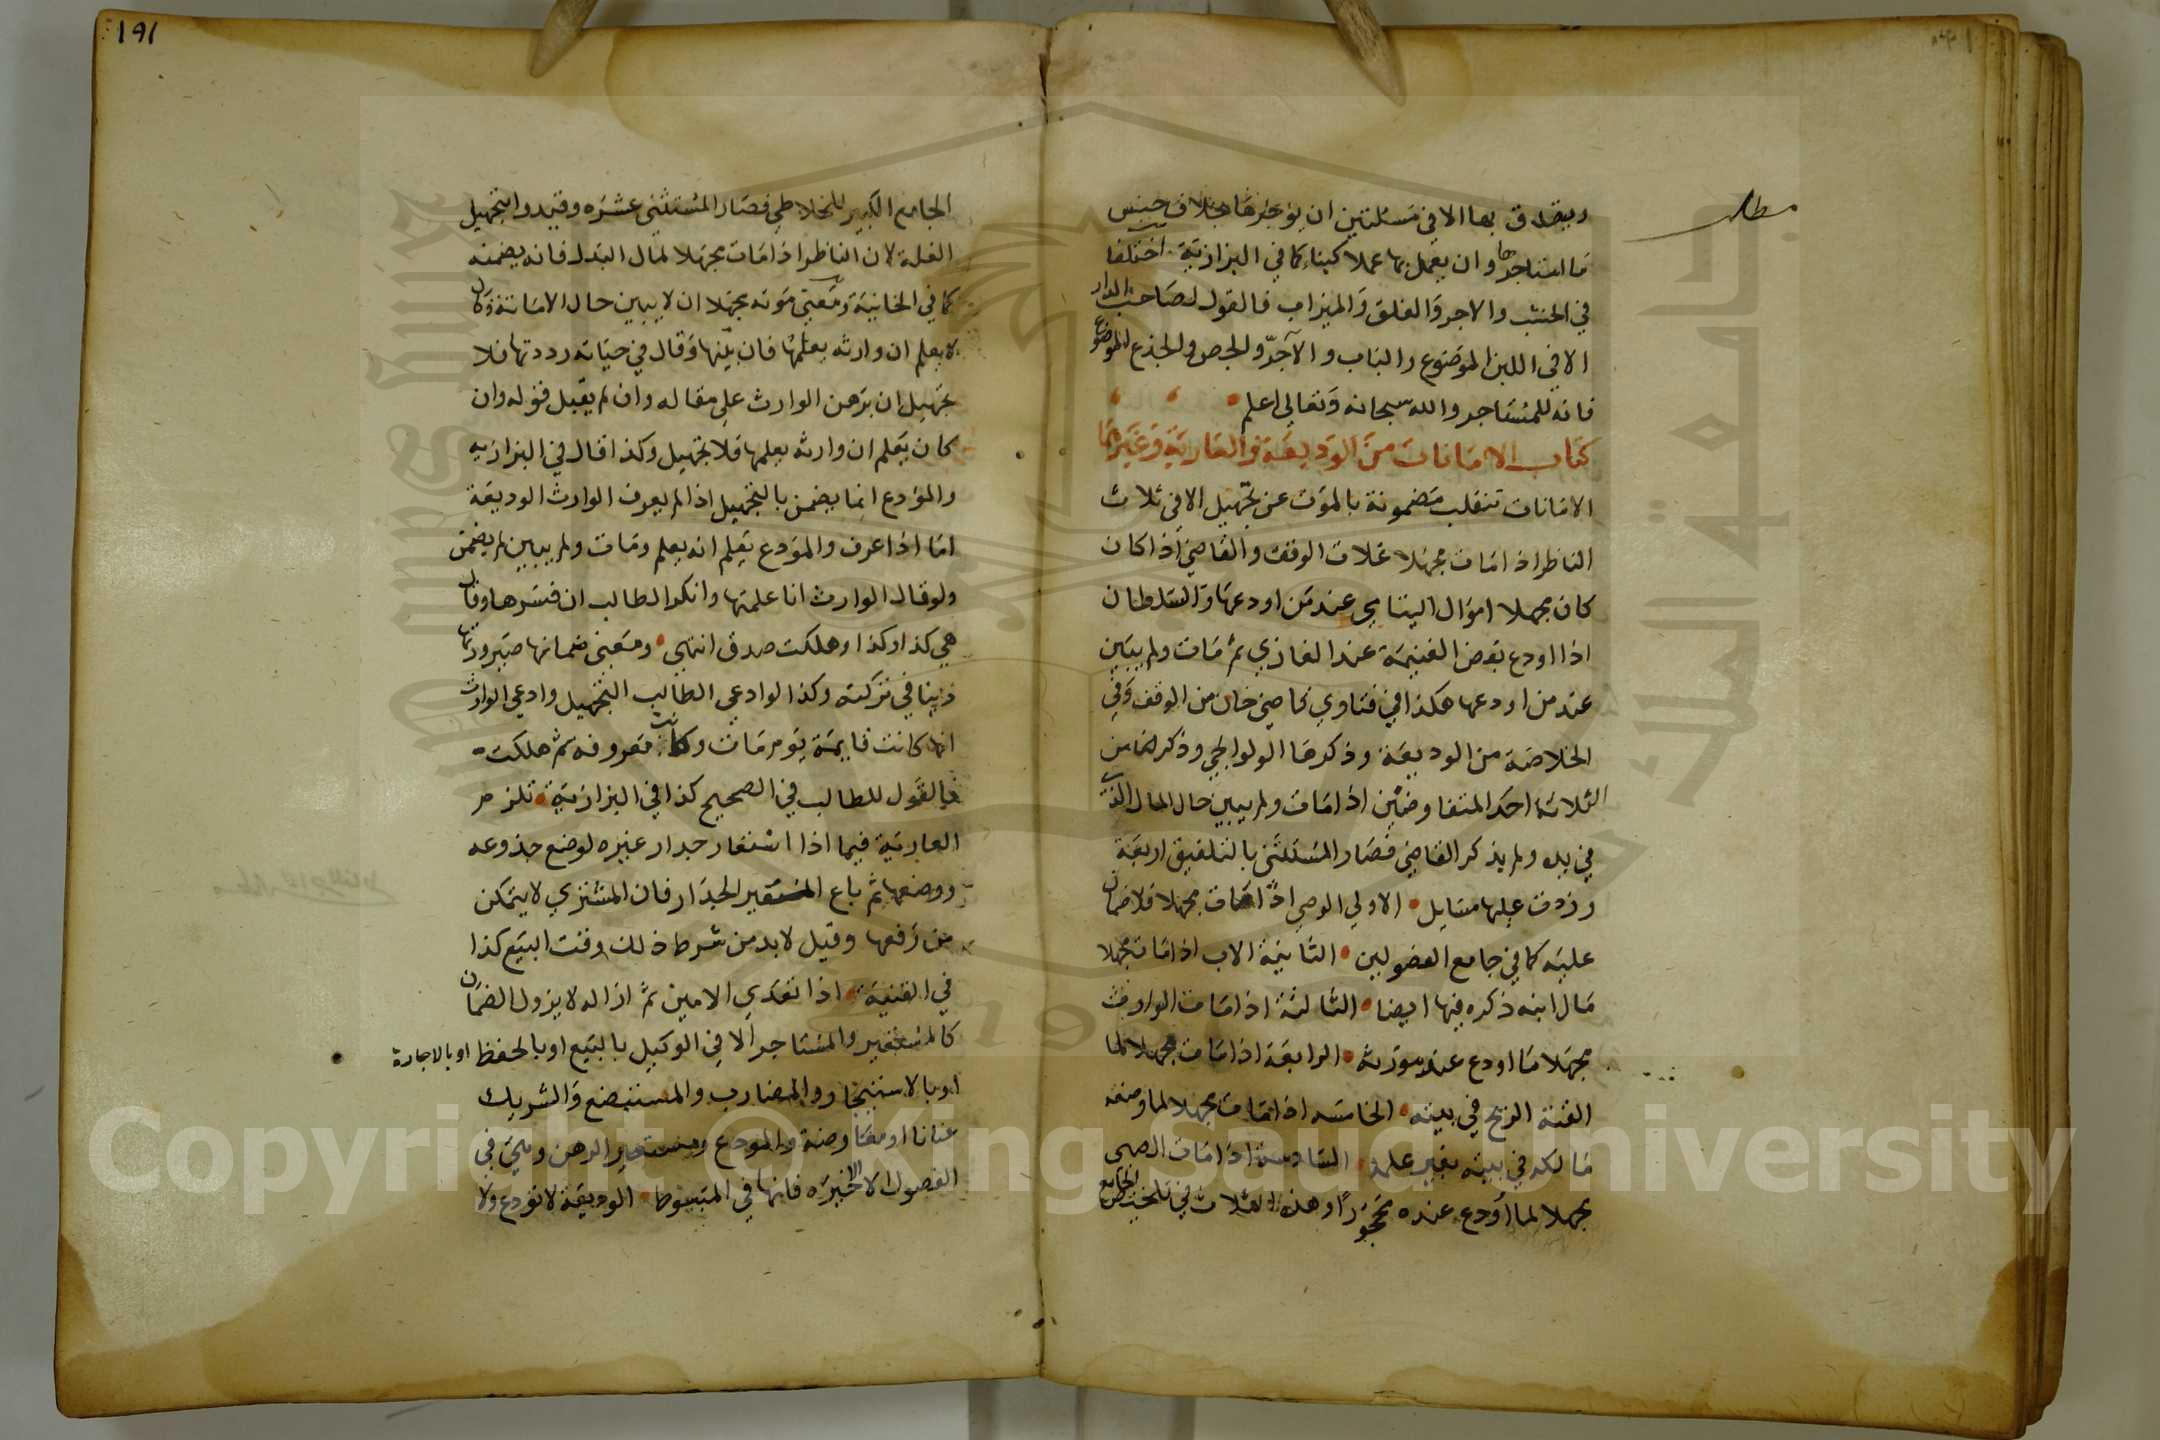 مطلب
ويتصدق بها الا في مسئلتين ان يؤجرها بخلاف جنس
ما استاجرها وان يعمل بها عملا كبناء كما في البزازية اختلفا
في الخشب والاجر والغلق والميزاب فالقول لصاحب الدار
الا في اللبن الموضوع والباب والآجر والجص والجذع الموضوع
فانه للمستاجر والله سبحانه وتعالي اعلم
كتاب الامانات من الوديعة والعارية وغيرهما
الامانات تنقلب مضمونة بالموت عن تجهيل الا في ثلاث
الناظر اذا مات مجهلا غلات الوقف والقاضي اذا كان
كان مجهلا اموال اليتامي عند من اودعها والسلطان
اذا اودع بعض الغنيمة عند الغازي ثم مات ولم يبين
عند من اودعها هكذا في فتاوي قاضي خان من الوقف وفي
الخلاصة من الوديعة وذكرها الولوالجي وذكر من
الثلاثة احد المتفاوضين اذا مات ولم يبين حال المال الذي
في يده ولم يذكر القاضي فصار المستثني بالتلفيق اربعة
وزدت عليها مسايل الاولي الوصي اذا مات مجهلا فلا ضمان
عليه كما في جامع الفصولين الثانية الاب اذا مات مجهلا
مال ابنه ذكره فيها ايضا الثالثة اذا مات الوارث
مجهلا ما اودع عند مورثه الرابعة اذا مات مجهلا لما
القته الريح في بيته الخامسه اذا مات مجهلا لما وضعه
مالكه في بيته بغير علمه السادسة اذا مات الصبي
مجهلا لما اودع عنده محجورا وهذه الثلاث في تلخيص الجامع
191
الجامع الكبير للخلاطي فصار المستثني عشره وقيدوا بتجهيل
الغلة لان الناظر اذا مات مجهلا لمال البدل فانه يضمنه
كما في الخانية ومعني موته مجهلا ان لا يبين حال الامانة وكان
لا يعلم ان وارثه يعلمها فان بينها وقال في حياته رددتها فلا
تجهيل ان برهن الوارث علي مقاله وان لم يقبل قوله وان
كان يعلم ان وارثه يعلمها فلا تجهيل وكذا قال في البزازيه
والمودع انما يضمن بالتجهيل اذا لم يعرف الوارث الوديعة
اما اذا عرف والمودع يعلم انه يعلم ومات ولم يبين لم يضمن
ولو قال الوارث انا علمتها وانكر الطالب ان فسرها وقال
هي كذا وكذا وهلكت صدق انتهي ومعني ضمانها صيرورتها
دينا في تركته وكذا لو ادعي الطالب التجهيل وادعي الوارث
انها كانت قايمة يوم مات وكانت معروفة ثم هلكت
فالقول للطالب في الصحيح كذا في البزازية تلزم
العارية فيما اذا استعار جدار غيره لوضع جذوعه
ووضعها ثم باع المعير الجدار فان المشتري لا يتمكن
من رفعها وقيل لا بد من شرط ذلك وقت البيع كذا
في القنية اذا تعدي الامين ثم ازاله لا يزول الضمان
كالمستعير والمستاجر الا في الوكيل بالبيع او بالحفظ او بالاجارة
او بالاستيجار والمضارب والمستبضع والشريك
عنانا او مفاوضة والمودع ومستعير الرهن وهي في
الفصول الا الاخيره فانها في المبسوط الوديعة لا تودع ولا
Copyright © King Saud University